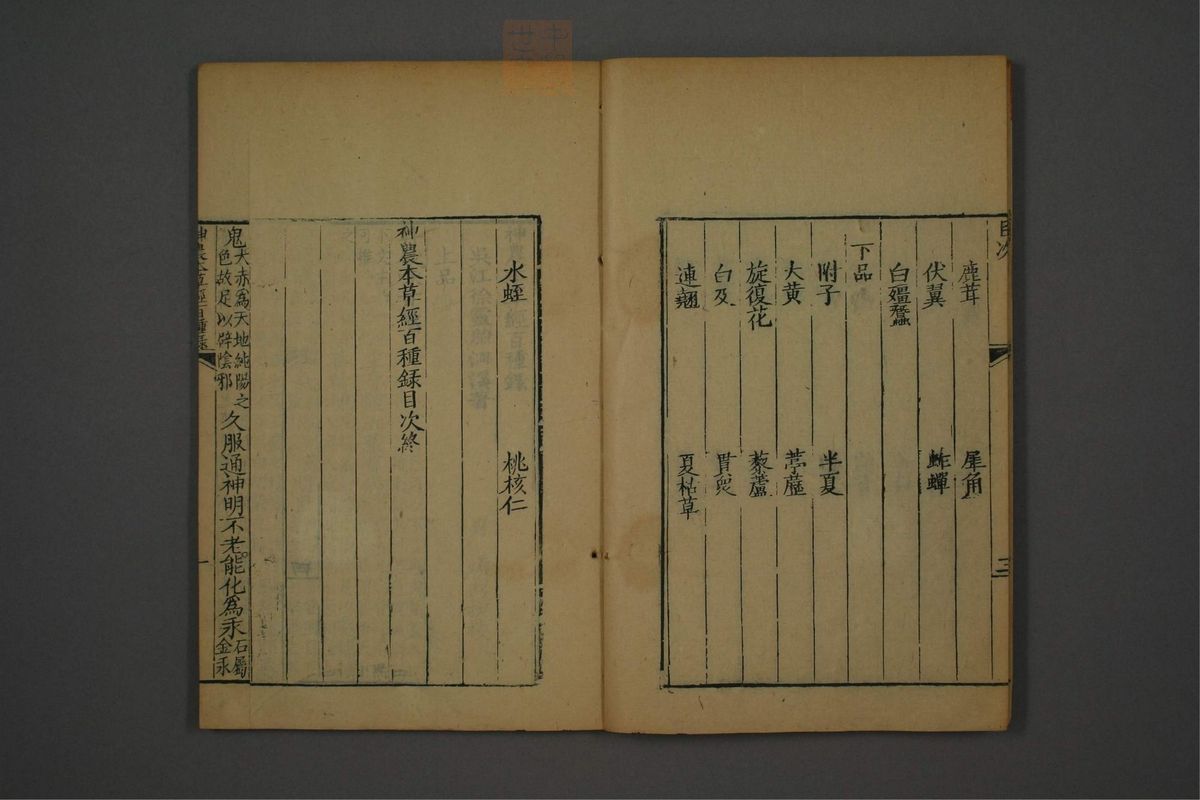 目次
鹿茸 犀角
伏翼 蚱蟬
白殭蠶
下品
附子 半夏
大黃 葶藶
旋復花 藜蘆
白及 貫衆
連翹 夏枯草
三
水蛭 桃核仁
神農本草經百種錄目次終
鬼
大赤為天地純陽之
色故足以辟陰邪
久服通神明不老能化為汞
石屬
金汞
神農本草經百種錄
一